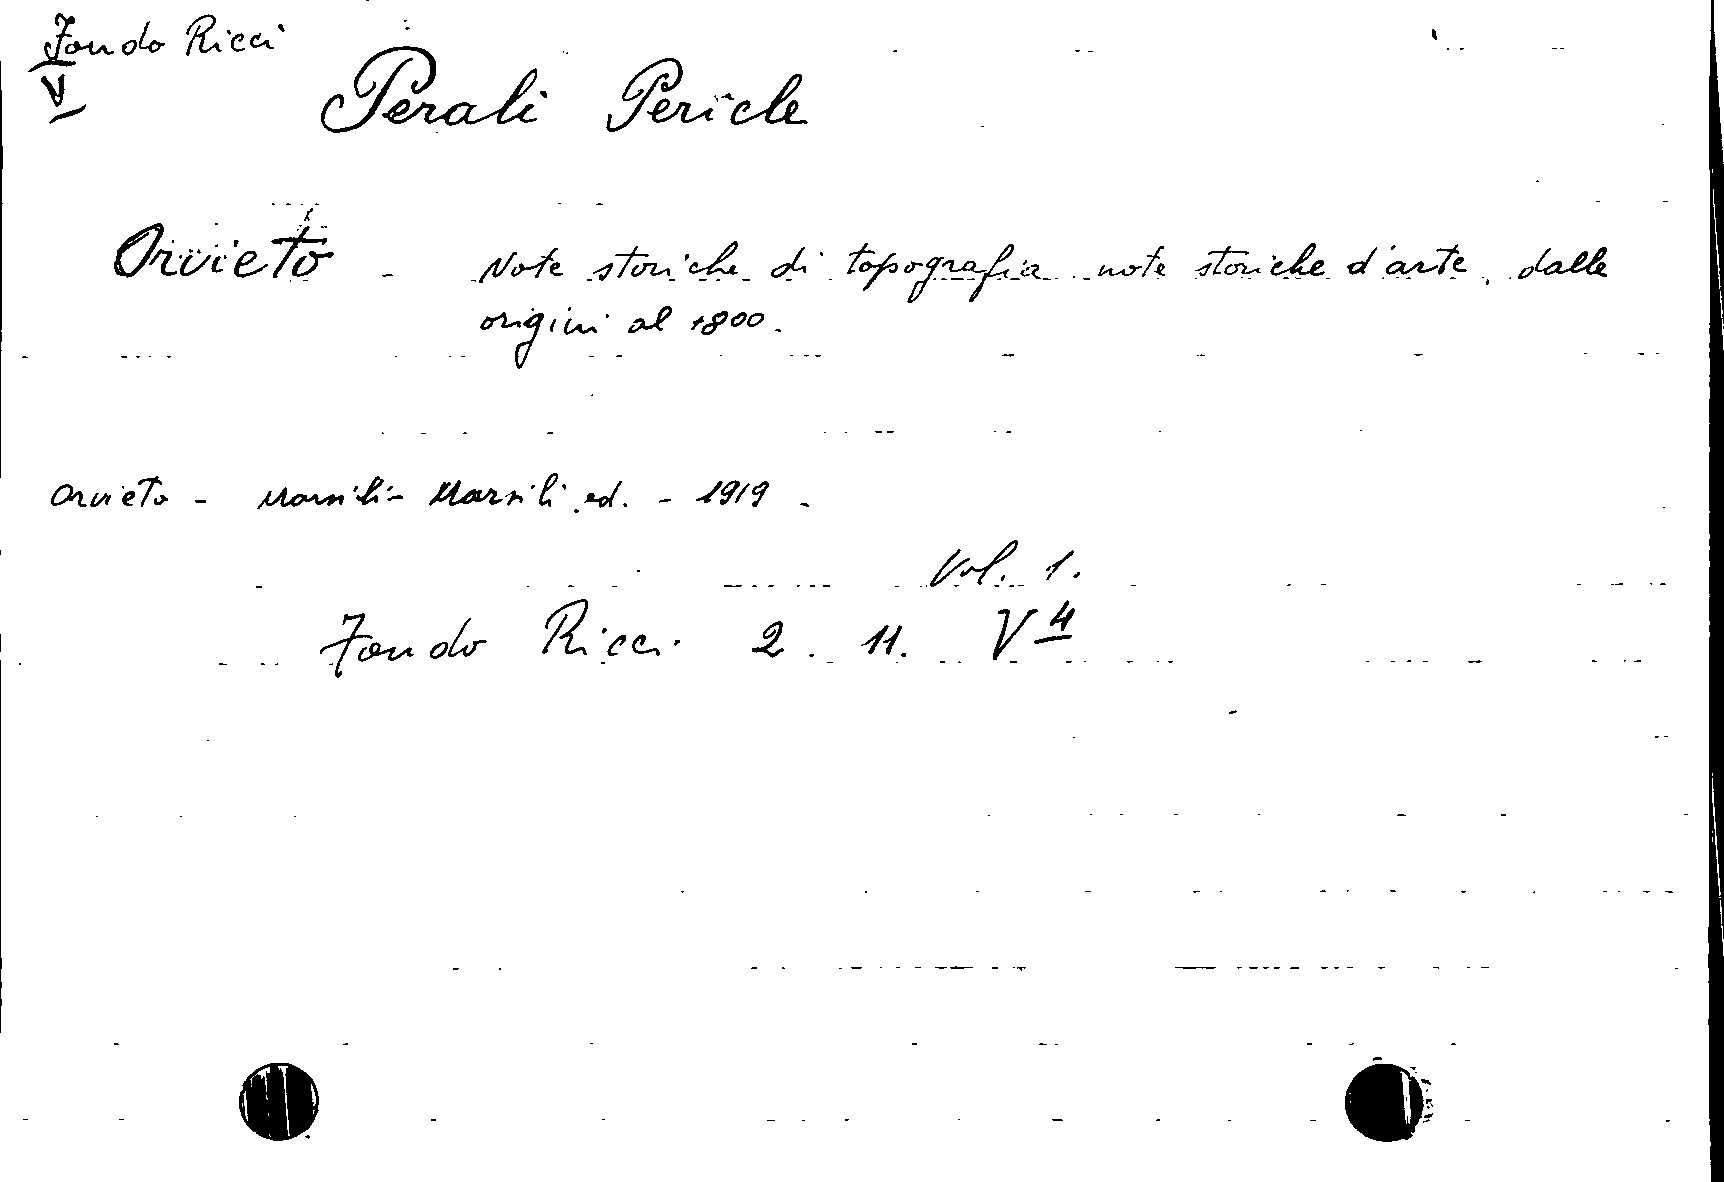 Fondo Ricci
V
Perali Pericle
Orvieto - Note storiche di topografia note storiche d'arte, dalle
origini al 1800.
Orvieto - Marsili - Marsili ed. - 1919 -
Vol. 1.
Fondo Ricci 2. 11. V 4